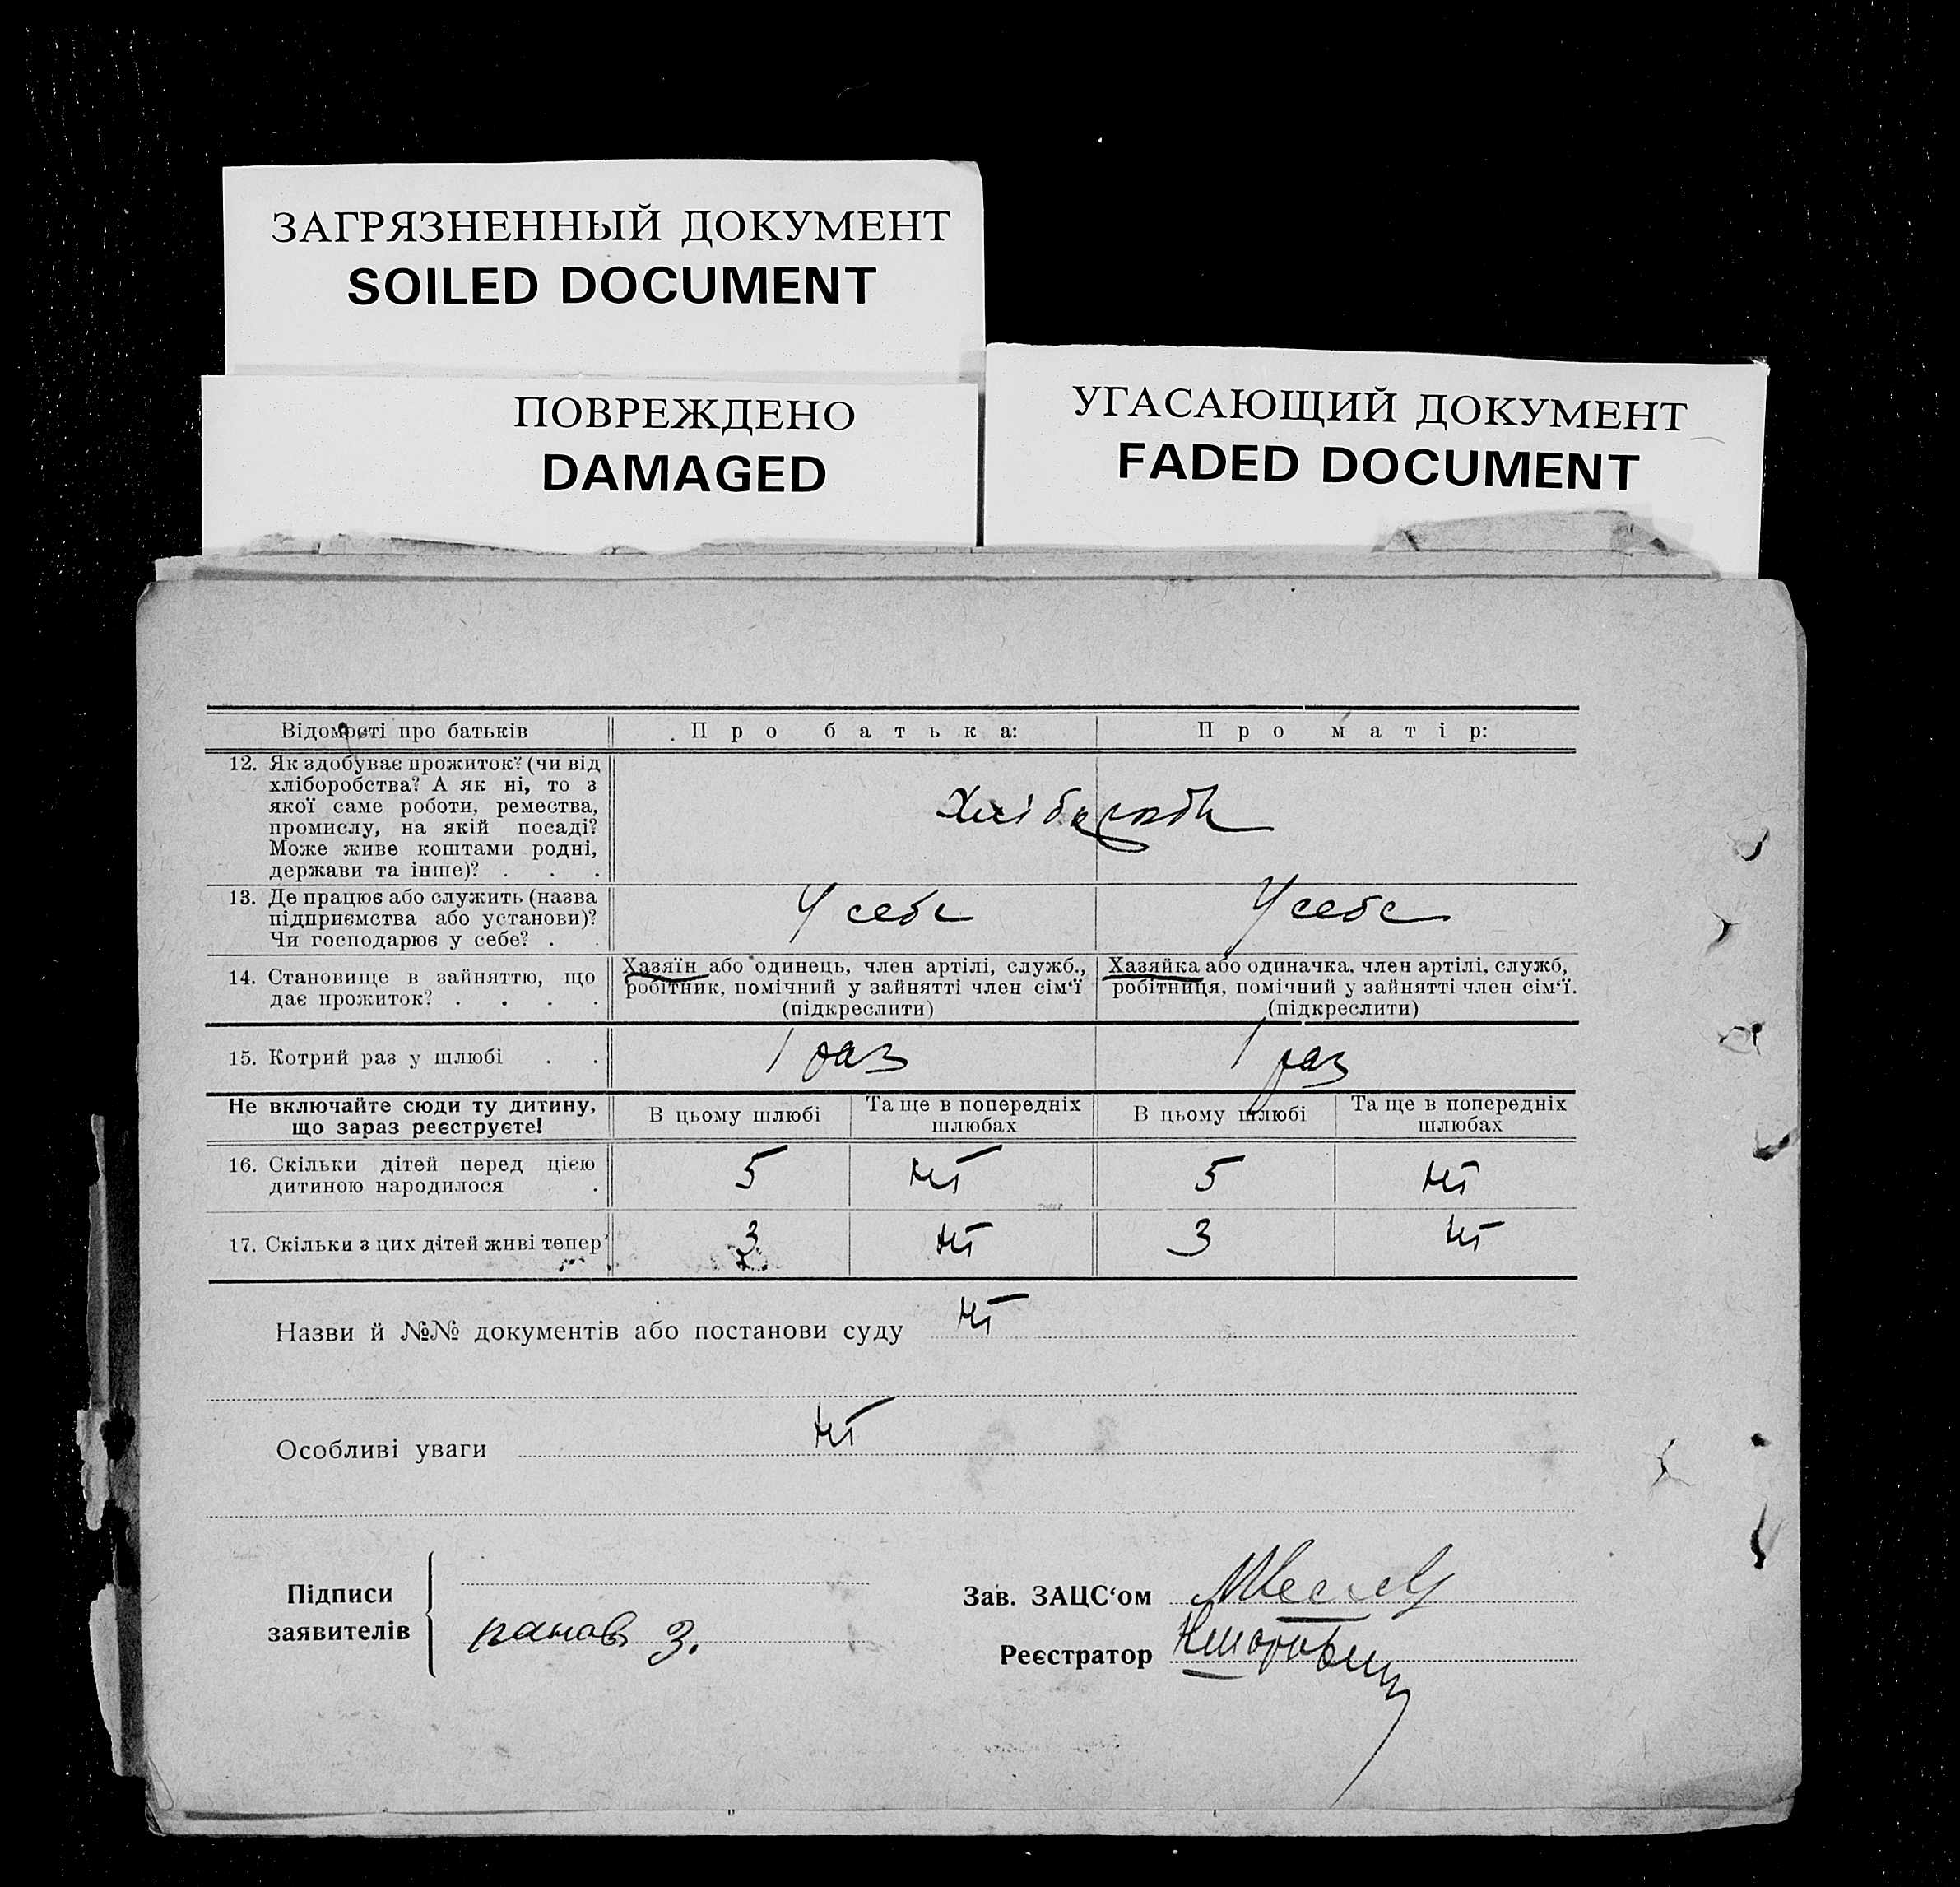 ЗАГРЯЗНЕННЫЙ ДОКУМЕНТ
SOILED DOCUMENT
ПОВРЕЖДЕНО
DAMAGED
УГАСАЮЩИЙ ДОКУМЕНТ
FADED DOCUMENT
Відомості про батьків
Про батька:
Про матір:
12. Як здобуває прожиток? (чи від
хліборобства? А як ні, то з
якої саме роботи, ремества,
промислу, на якій посаді?
Може живе коштами родні,
держави та інше)? . . .
13. Де працює або служить (назва
підприємства або установи)?
Чи господарює у себе? . .
У себе
У себе
14. Становище в зайняттю, що
дає прожиток? . . . .
Хазяїн або одинець, член артілі, служб.,
робітник, помічний у зайнятті член сім‘ї
(підкреслити)
Хазяйка або одиначка, член артілі, служб,
робітниця, помічний у зайнятті член сім‘ї.
(підкреслити)
15. Котрий раз у шлюбі . .
1 раз
1 раз
Не включайте сюди ту дитину,
що зараз реєструєте!
В цьому шлюбі
Та ще в попередніх
шлюбах
В цьому шлюбі
Та ще в попередніх
шлюбах
16. Скільки дітей перед цією
дитиною народилося .
5
ні
5
ні
17. Скільки з цих дітей живі тепер
3
ні
3
ні
Назви й №№ документів або постанови суду ні
Особливі уваги ні
Підписи
заявителів
панов З.
Зав. ЗАЦС‘ом
Реєстратор